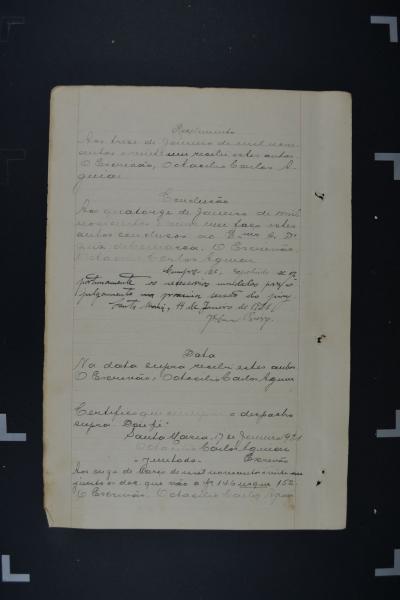 Recebimento
Aos treze de Janeiro de mil nove
centos e vinte um recebi estes autos.
O Escrivão, Octacilio Carlos A-
guiar
Conclusão
Aos quatorze de Janeiro de mil
novecentos e vinte um faço estes
autos conclusos ao Exmo Sr. Dr.
Juiz de Comarca. O Escrivão,
Octacilio Carlos Aguiar
Cumpra-se, se op
portunamente os necessarios mandados para o
julgamento na proxima sessão do jury
Santa Maria, 14 Janeiro de 1921
Data
Na data supra recebi estes autos.
O Escrivão: Octacilio Carlos Aguiar
Certifico que cumpri o despacho
supra. Dou fé.
Santa Maria, 17 de Janeiro 921
Octacilio Carlos Aguiar
Juntada Escrivão
Aos de Março de mil novecentos e vinte um
junto os doc. que vão a fs 146 usque 152.
O Escrivão. Octacilio Carlos Aguiar